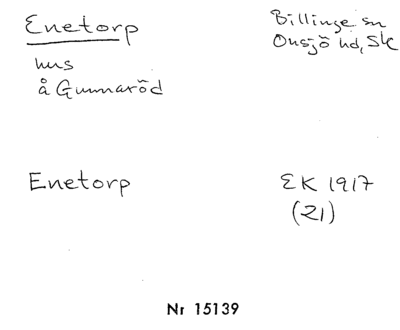 Enetorp
Billinge sn
Onsjö hd, Sk
hus
å Gunnaröd
Enetorp
EK 1917
(21)
Nr 15139